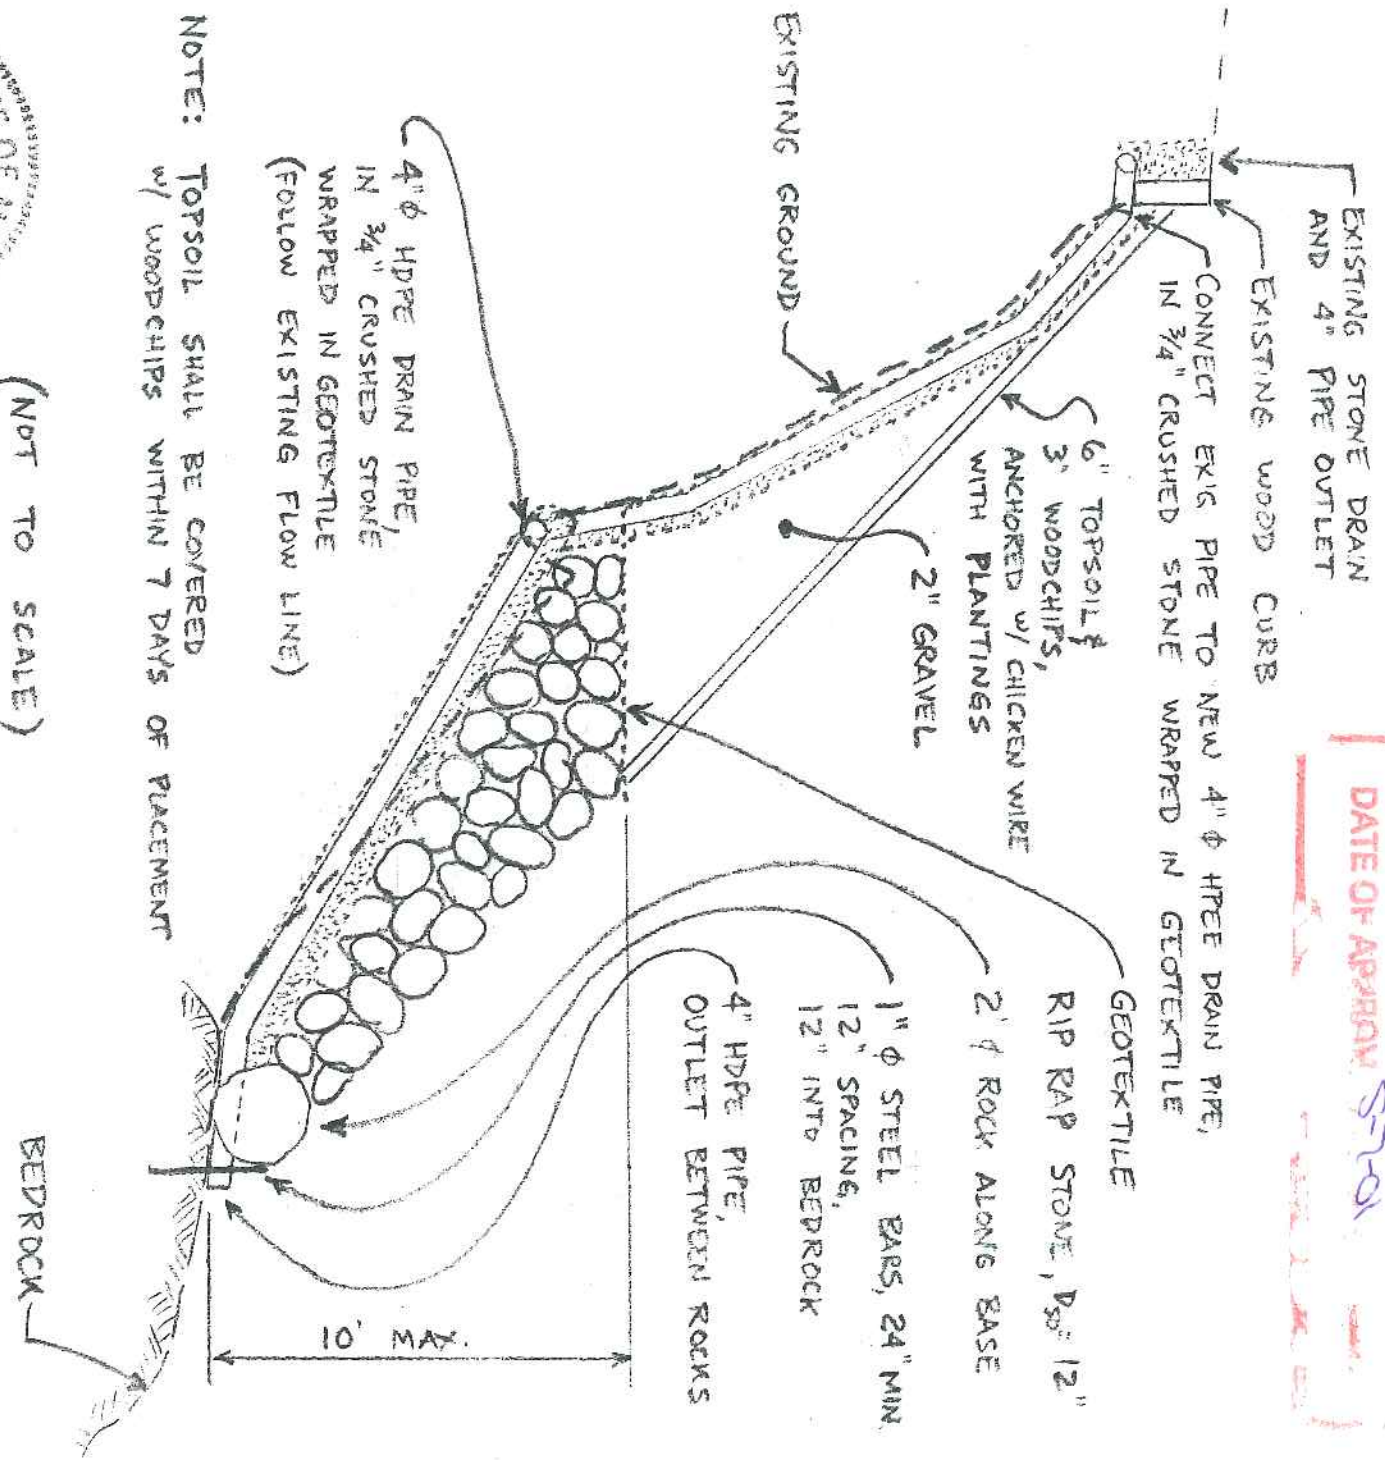 DATE OF APPROVAL 5-7-01
EXISTING STONE DRAIN
AND 4" PIPE OUTLET
EXISTING WOOD CURB
CONNECT EX'G PIPE TO NEW 4" φ HPEE DRAIN PIPE,
IN 3/4" CRUSHED STONE WRAPPED IN GEOTEXTILE
6" TOPSOIL &
3" WOODCHIPS,
ANCHORED W/ CHICKEN WIRE
WITH PLANTINGS
2" GRAVEL
EXISTING GROUND
GEOTEXTILE
RIP RAP STONE, D50" 12"
2' φ ROCK ALONG BASE
1" φ STEEL BARS, 24" MIN.
12" SPACING,
12" INTO BEDROCK
4" HDPE PIPE,
OUTLET BETWEEN ROCKS
10' MAX.
4" φ HDPE DRAIN PIPE,
IN 3/4" CRUSHED STONE
WRAPPED IN GEOTEXTILE
(FOLLOW EXISTING FLOW LINE)
BEDROCK
NOTE: TOPSOIL SHALL BE COVERED
W/ WOODCHIPS WITHIN 7 DAYS OF PLACEMENT
(NOT TO SCALE)
OF